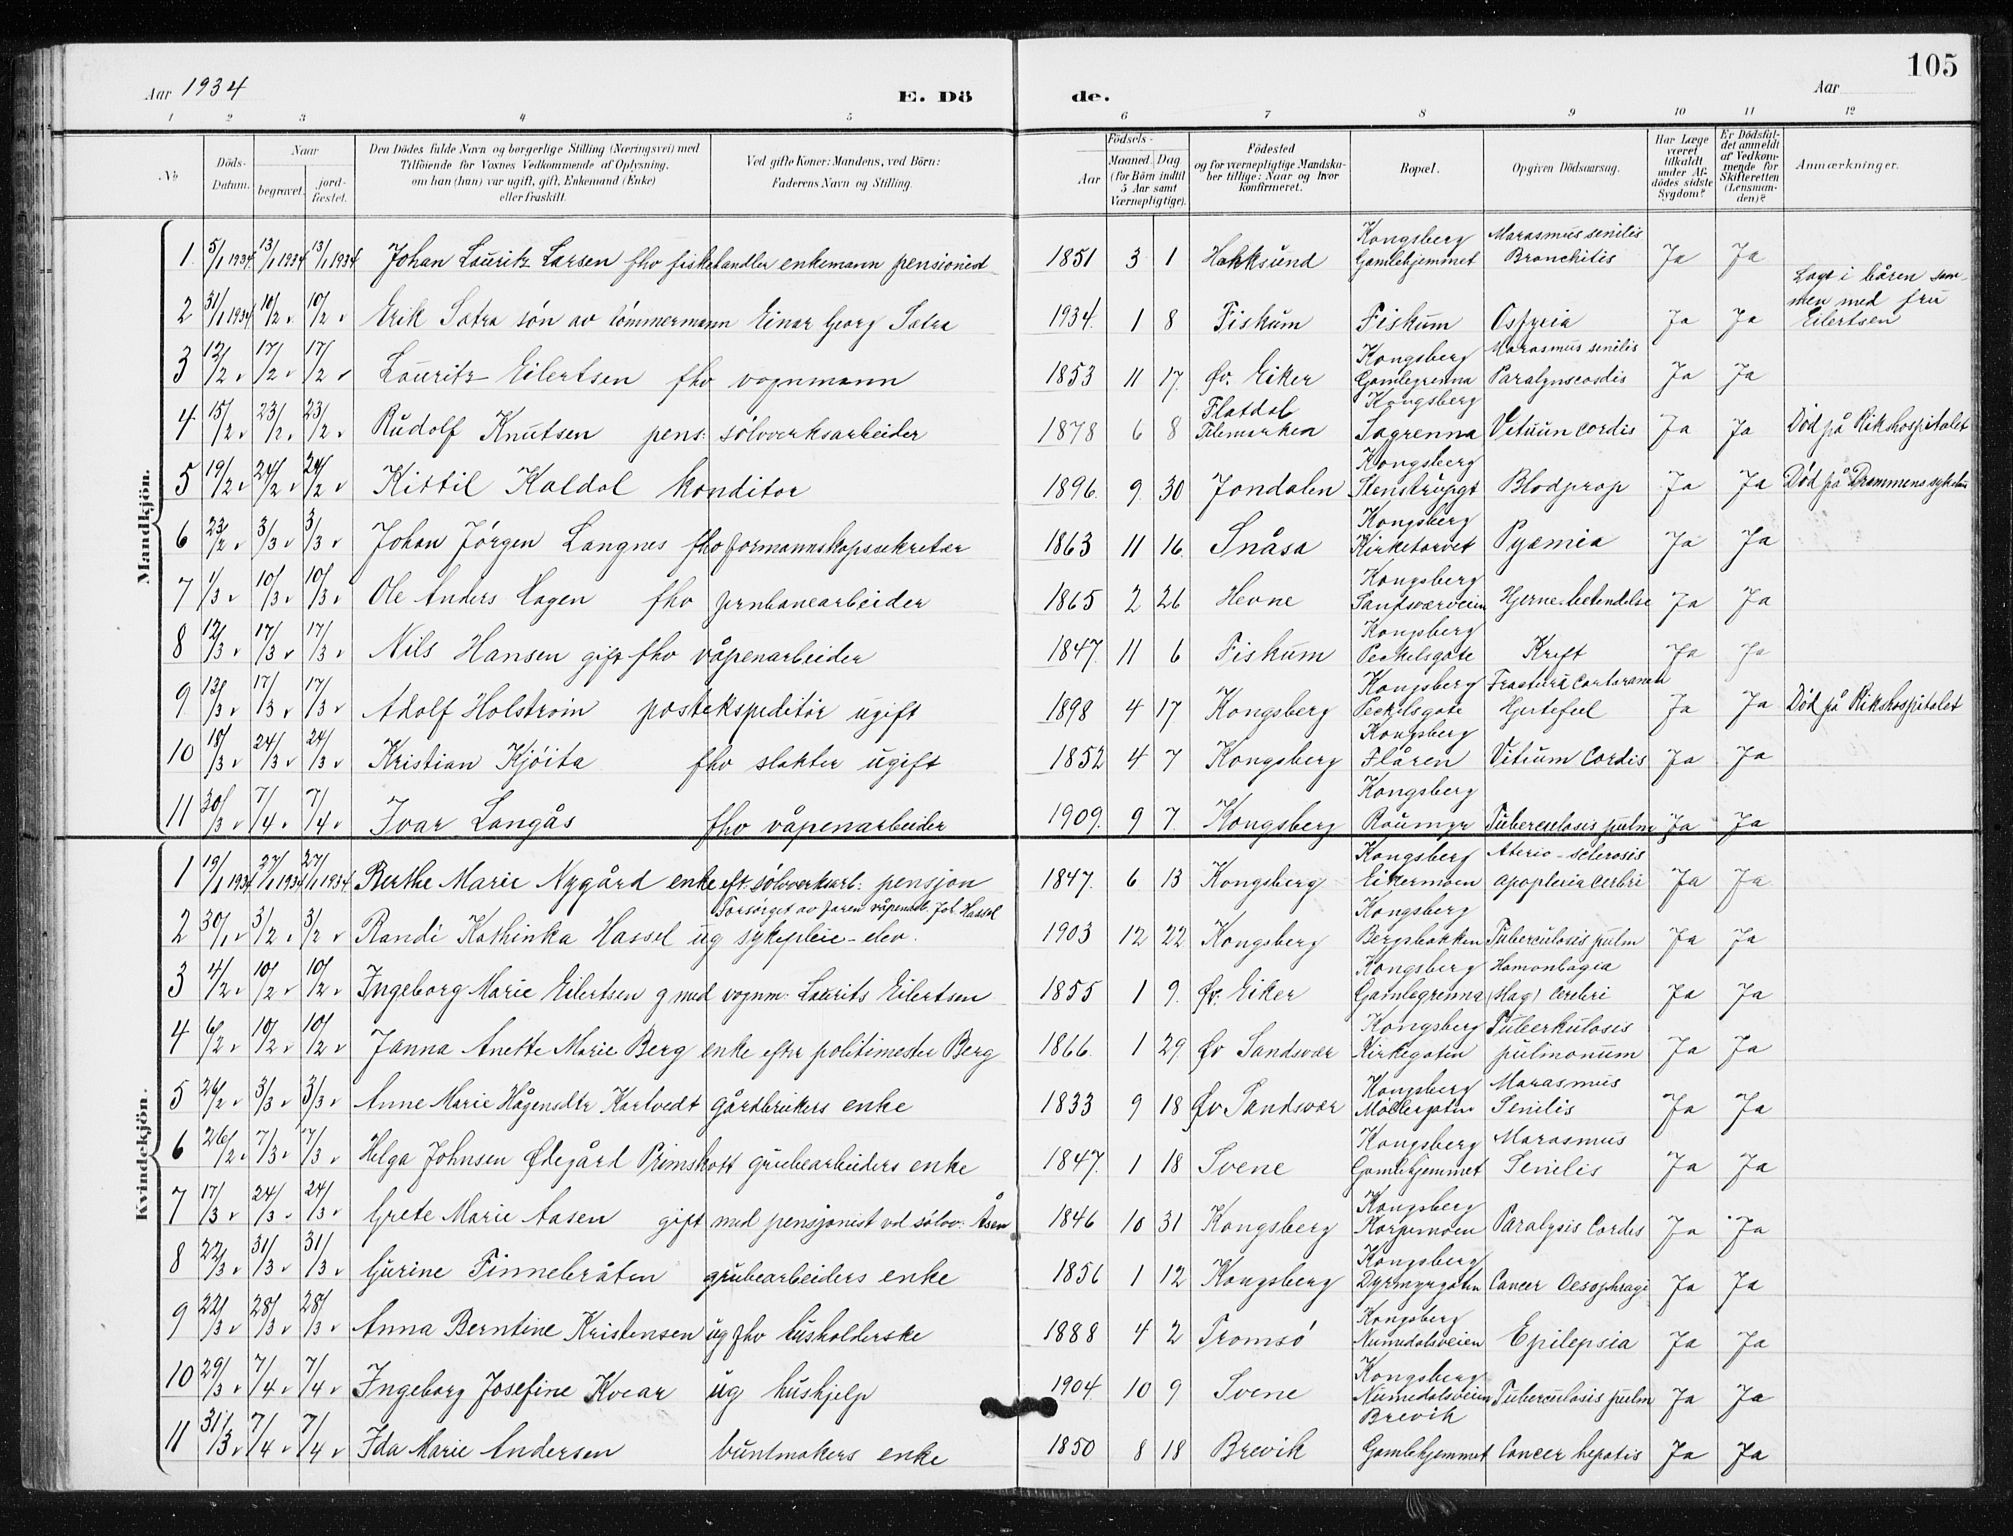 105
Aar 1934
E. Dö
de.
Aar
1 2 3 4 5 6 7 8 9 10 11 12
No
Döds-Datum.
Naar
begravet.
jord-fæstet.
Den Dödes fulde Navn og borgerlige Stilling (Næringsvei) med
Tilföiende for Voxnes Vedkommende af Oplysning,
om han (hun) var ugift, gift, Enkemand (Enke)
eller fraskilt.
Ved gifte Koner: Mandens, ved Börn:
Faderens Navn og Stilling.
Födsels-
Aar
Maaned. Dag
(for Börn indtil
5 Aar samt
Værnepligtige).
Födested
og for værnepligtige Mandska-
ber tillige: Naar og hvor
konfirmeret.
Bopæl.
Opgiven Dödsaarsag.
Har Læge
været
tilkaldt
under Af-
dödes sidste
Sygdom?
Er Dödsfal-
det anmeldt
af Vedkom-
mende for
Skifteretten
(Lensman-
den)?
Anmærkninger.
Mandkjön.
1 5/1 1934 13/1 1934 13/1 1934 Johan Lauritz Larsen fhv fiskehandler enkemann pensionist 1851 3 1 Hokksund Kongsberg Gamlehjemmet Marasmus senilis Bronchitis Ja Ja
2 31/1 1934 10/2 " 10/2 " Erik Satra søn av tømmermann Einar Georg Satra 1934. 1 8 Fiskum Fiskum Ja Ja Lagt i båren sam-
men med fru
Eilertsen
3 12/2 " 17/2 " 17/2 " Lauritz Eilertsen fhv vognmann 1853 11 17. Øv. Eiker Kongsberg Gamlegrenna Marasmus senilis Paralysecordis Ja Ja
4 15/2 " 23/2 " 23/2 " Rudolf Knutsen pens: sølvverksarbeider 1878 6 8 Flatdal Telemarken Kongsberg Sagrenna Vitium cordis Ja Ja Død på Rikshospitalet
5 19/2 " 24/2 " 24/2 " Kittil Kaldal konditor 1896. 9. 30 Jondalen Kongsberg Stenstrupgt Blodprop Ja Ja Død på Drammens sykehus
6 23/2 " 3/3 " 3/3 " Johan Jørgen Langnes fhv formannskapssekretær 1863 11 16. Snåsa Kongsberg Kirketorvet Pyæmia Ja Ja
7 1/3 " 10/3 " 10/3 " Ole Anders Hagen fhv jernbanearbeider 1865 2 26 Hevne Kongsberg Sandsværveien Hjerne betendelse Ja Ja
8 12/3 " 17/3 " 17/3 " Nils Hansen gift fhv våpenarbeider 1847. 11 6 Fiskum Kongsberg Peckelsgate Kreft Ja Ja
9 13/3 " 17/3 " 17/3 " Adolf Holstrom postekspeditør ugift 1898 4 17 Kongsberg Kongsberg Peckelsgate Hjertefeil Ja Ja Død på Rikshospitalet
10 18/3 " 24/3 " 24/3 " Kristian Kjøita fhv slakter ugift 1852 4 7 Kongsberg Kongsberg Flåren Vitium Cordis Ja Ja
11 30/3 " 7/4 " 7/4 " Ivar Langås fhv våpenarbeider 1909. 9 7. Kongsberg Kongsberg Raumyr Tuberculosis pulm Ja Ja
Kvindekjön.
1 19/1 1934 27/1 1934 27/1 1934 Berthe Marie Nygård enke eft: sølvverksarb: pensjon 1847. 6 13 Kongsberg Kongsberg Eikermoen Aterio-sclerosis apoplexia cerbri Ja Ja
2 30/1 " 3/2 " 3/2 " Randi Kathinka Hassel ug sykepleie-elev. Forsørget av faren våpenarb. Joh Hassel 1903 12 22 Kongsberg Kongsberg Bergsbakken Tuberculosis pulm Ja Ja
3 4/2 " 10/2 " 10/2 " Ingeborg Marie Eilertsen g med vognm: Laurits Eilertsen 1855 1 9. Øv. Eiker Kongsberg Gamlegrenna (Hag) cerebri Ja Ja
4 6/2 " 10/2 " 10/2 " Janna Anette Marie Berg enke efter politimester Berg 1866. 1 29. Øv Sandsvær Kongsberg Kirkegaten Tuberkulosis pulmonum Ja Ja
5 26/2 " 3/3 " 3/3 " Anne Marie Hågensdtr Karlvedt gårdbrukers enke 1833 9 18 Øv Sandsvær Kongsberg Møllergaten Marasmus Senilis Ja Ja
6 26/2 " 7/3 " 7/3 " Helga Johnsen Ødegård Primskott grubearbeiders enke 1847. 1 18 Svene Kongsberg Gamlehjemmet Marasmus Senilis Ja Ja
7 17/3 " 24/3 " 24/3 " Grete Marie Aasen gift med pensjonist vd sølvv: Åsen 1846 10 31 Kongsberg Kongsberg Korpemoen Paralysis Cordis Ja Ja
8 22/3 " 31/3 " 31/3 " Gurine Finnebråten grubearbeiders enke 1856 1 12 Kongsberg Kongsberg Dyrmyrgaten Cancer Oesophragi Ja Ja
9 22/3 " 28/3 " 28/3 " Anna Berntine Kristensen ug fhv husholderske 1888 4 2 Tromsø Kongsberg Numedalsveien Epilepsia Ja Ja
10 29/3 " 7/4 " 7/4 " Ingeborg Josefine Kvear ug hushjelp 1904. 10 9 Svene Kongsberg Numedalsveien Tuberculosis pulm Ja Ja
11 31/3 " 7/4 " 7/4 " Ida Marie Andersen buntmakers enke 1850 8 18 Brevik Brevik Gamlehjemmet Cancer hepatis Ja Ja